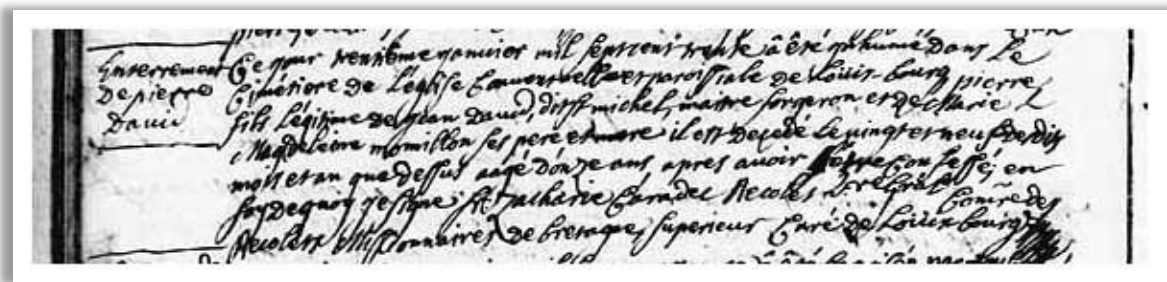 Enterrement
De pierre
David
Ce jour trentieme janvier mil sept cent trente à été inhumé dans Le
Cimetiere de L'eglise Conventuelle et paroissiale de Loüis-bourg pierre
fils Légitime de jean David, dit st michel, maitre forgeron et de Marie
Magdeleine momillon ses pere et mere il est decedé Le vingt et neuf desdits
mois et an que dessus aagé donze ans, apres avoir Confessé, en
foy de quoy j'ay signé fr. Zacharie Caradec Recolet
Recolets Missionnaires de bretagne, superieur Curé de Loüisbourg